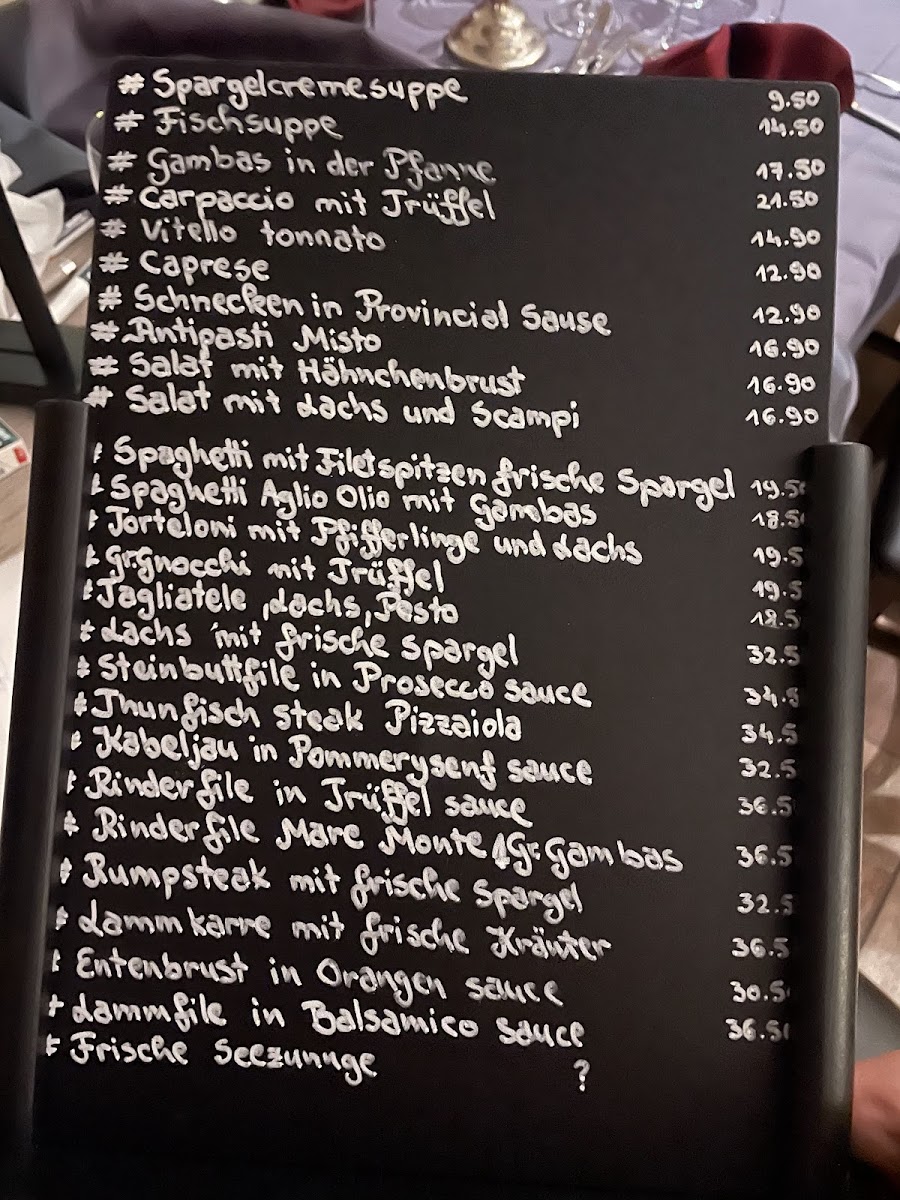 # Spargelcremesuppe 9.50
# Fischsuppe 14.50
# Gambas in der Pfanne 17.50
# Carpaccio mit Trüffel 21.50
# Vitello tonnato 14.90
# Caprese 12.90
# Schnecken in Provincial Sause 12.90
# Antipasti Misto 16.90
# Salat mit Hähnchenbrust 16.90
# Salat mit Lachs und Scampi 16.90
# Spaghetti mit Filetspitzen frische Spargel 19.50
# Spaghetti Aglio Olio mit Gambas 18.50
# Torteloni mit Pfifferlinge und Lachs 19.5
# Gr.gnocchi mit Trüffel 19.5
# Tagliatele, Lachs, Pesto 18.5
# Lachs mit frische Spargel 32.5
# Steinbuttfile in Prosecco sauce 34.5
# Thunfisch steak Pizzaiola 34.5
# Kabeljau in Pommerysenf sauce 32.5
# Rinderfile in Trüffel sauce 36.5
# Rinderfile Mare Monte 1Gr. Gambas 36.5
# Rumpsteak mit frische Spargel 32.5
# Lammkarre mit frische Kräuter 36.5
# Entenbrust in Orangen sauce 30.50
# Lammfile in Balsamico sauce 36.50
# Frische Seezunnge ?